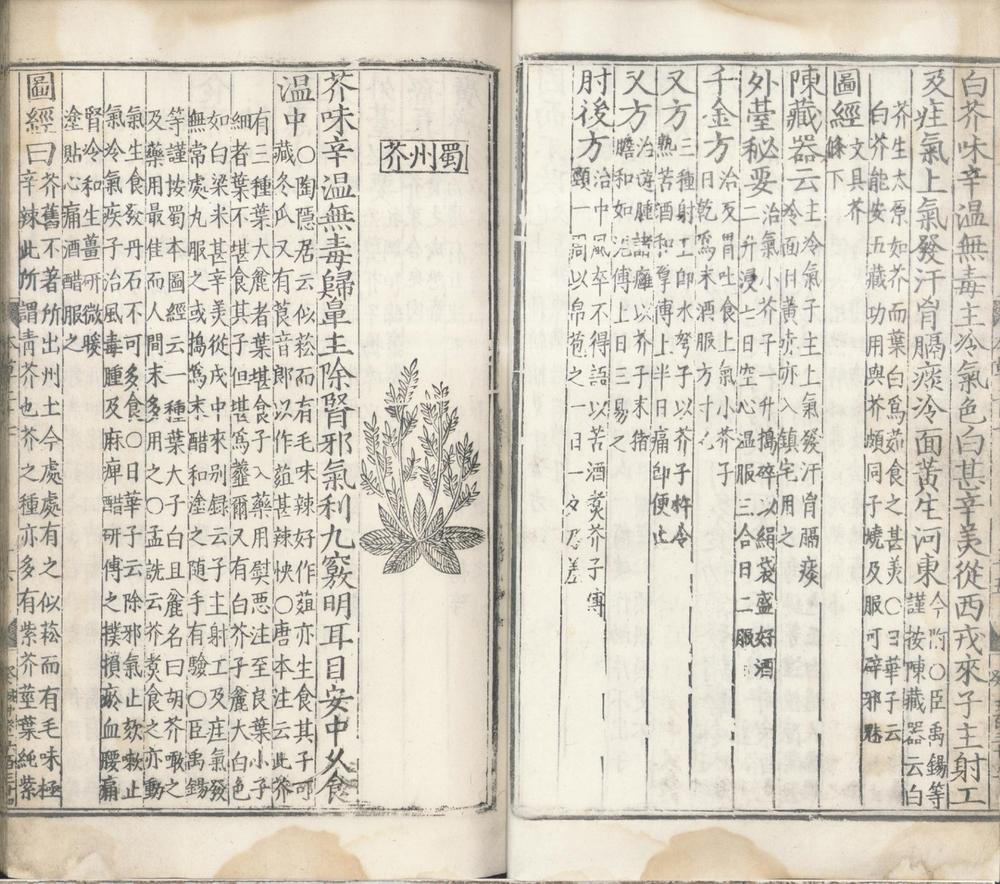 白芥味辛溫無毒主冷氣色白甚辛美從西戎來子主射工
及疰氣上氣發汗胷膈痰冷面黃生河東今附○臣禹錫等
謹按陳藏器云白
芥生太原如芥而葉白爲茹食之甚美○日華子云
白芥能安五藏功用與芥頗同子燒及服可辟邪魅
圖經文具芥
條下
陳藏器云主冷氣子主上氣發汗胷膈痰
冷面目黃赤亦入鎮宅用之
外臺秘要治氣小芥子一升搗碎以絹袋盛好酒
二升浸七日空心溫服三合日二服
千金方治反胃吐食上氣小芥子
日乾爲末酒服方寸匕
又方三種射工卽水弩子以芥子杵令
熟苦酒和厚傅上半日痛卽便止
又方治遊腫諸癰以芥子末猪
膽和如泥傅上日三易之
肘後方治中風卒不得語以苦酒煑芥子傅
頸一周以帛苞之一日一夕乃差
蜀州芥
芥味辛溫無毒歸鼻主除腎邪氣利九竅明耳目安中久食
溫中○陶隱居云似菘而有毛味辣好作菹亦生食其子可
藏冬瓜又有莨菪郎以作菹甚辣快○唐本注云此芥
有三種葉大麄者葉堪食子入藥用熨惡注至良葉小子
細者葉不堪食其子但堪爲虀爾又有白芥子麄大白色
如白梁米甚辛美從戎中來别録云子主射工及疰氣發
無常處丸服之或搗爲末醋和塗之隨手有驗○臣禹錫
等謹按蜀本圖經云一種葉大子白且麄名曰胡芥啖之
及藥用最佳而人間未多用之○孟詵云芥煑食之亦動
氣生食發丹石不可多食○日華子云除邪氣止欬嗽上
氣冷氣疾子治風毒腫及麻痺醋研傅之撲損瘀血腰痛
腎冷和生薑研微暖
塗貼心痛酒醋服之
圖經曰芥舊不著所出州土今處處有之似菘而有毛味極
辛辣此所謂青芥也芥之種亦多有紫芥莖葉純紫